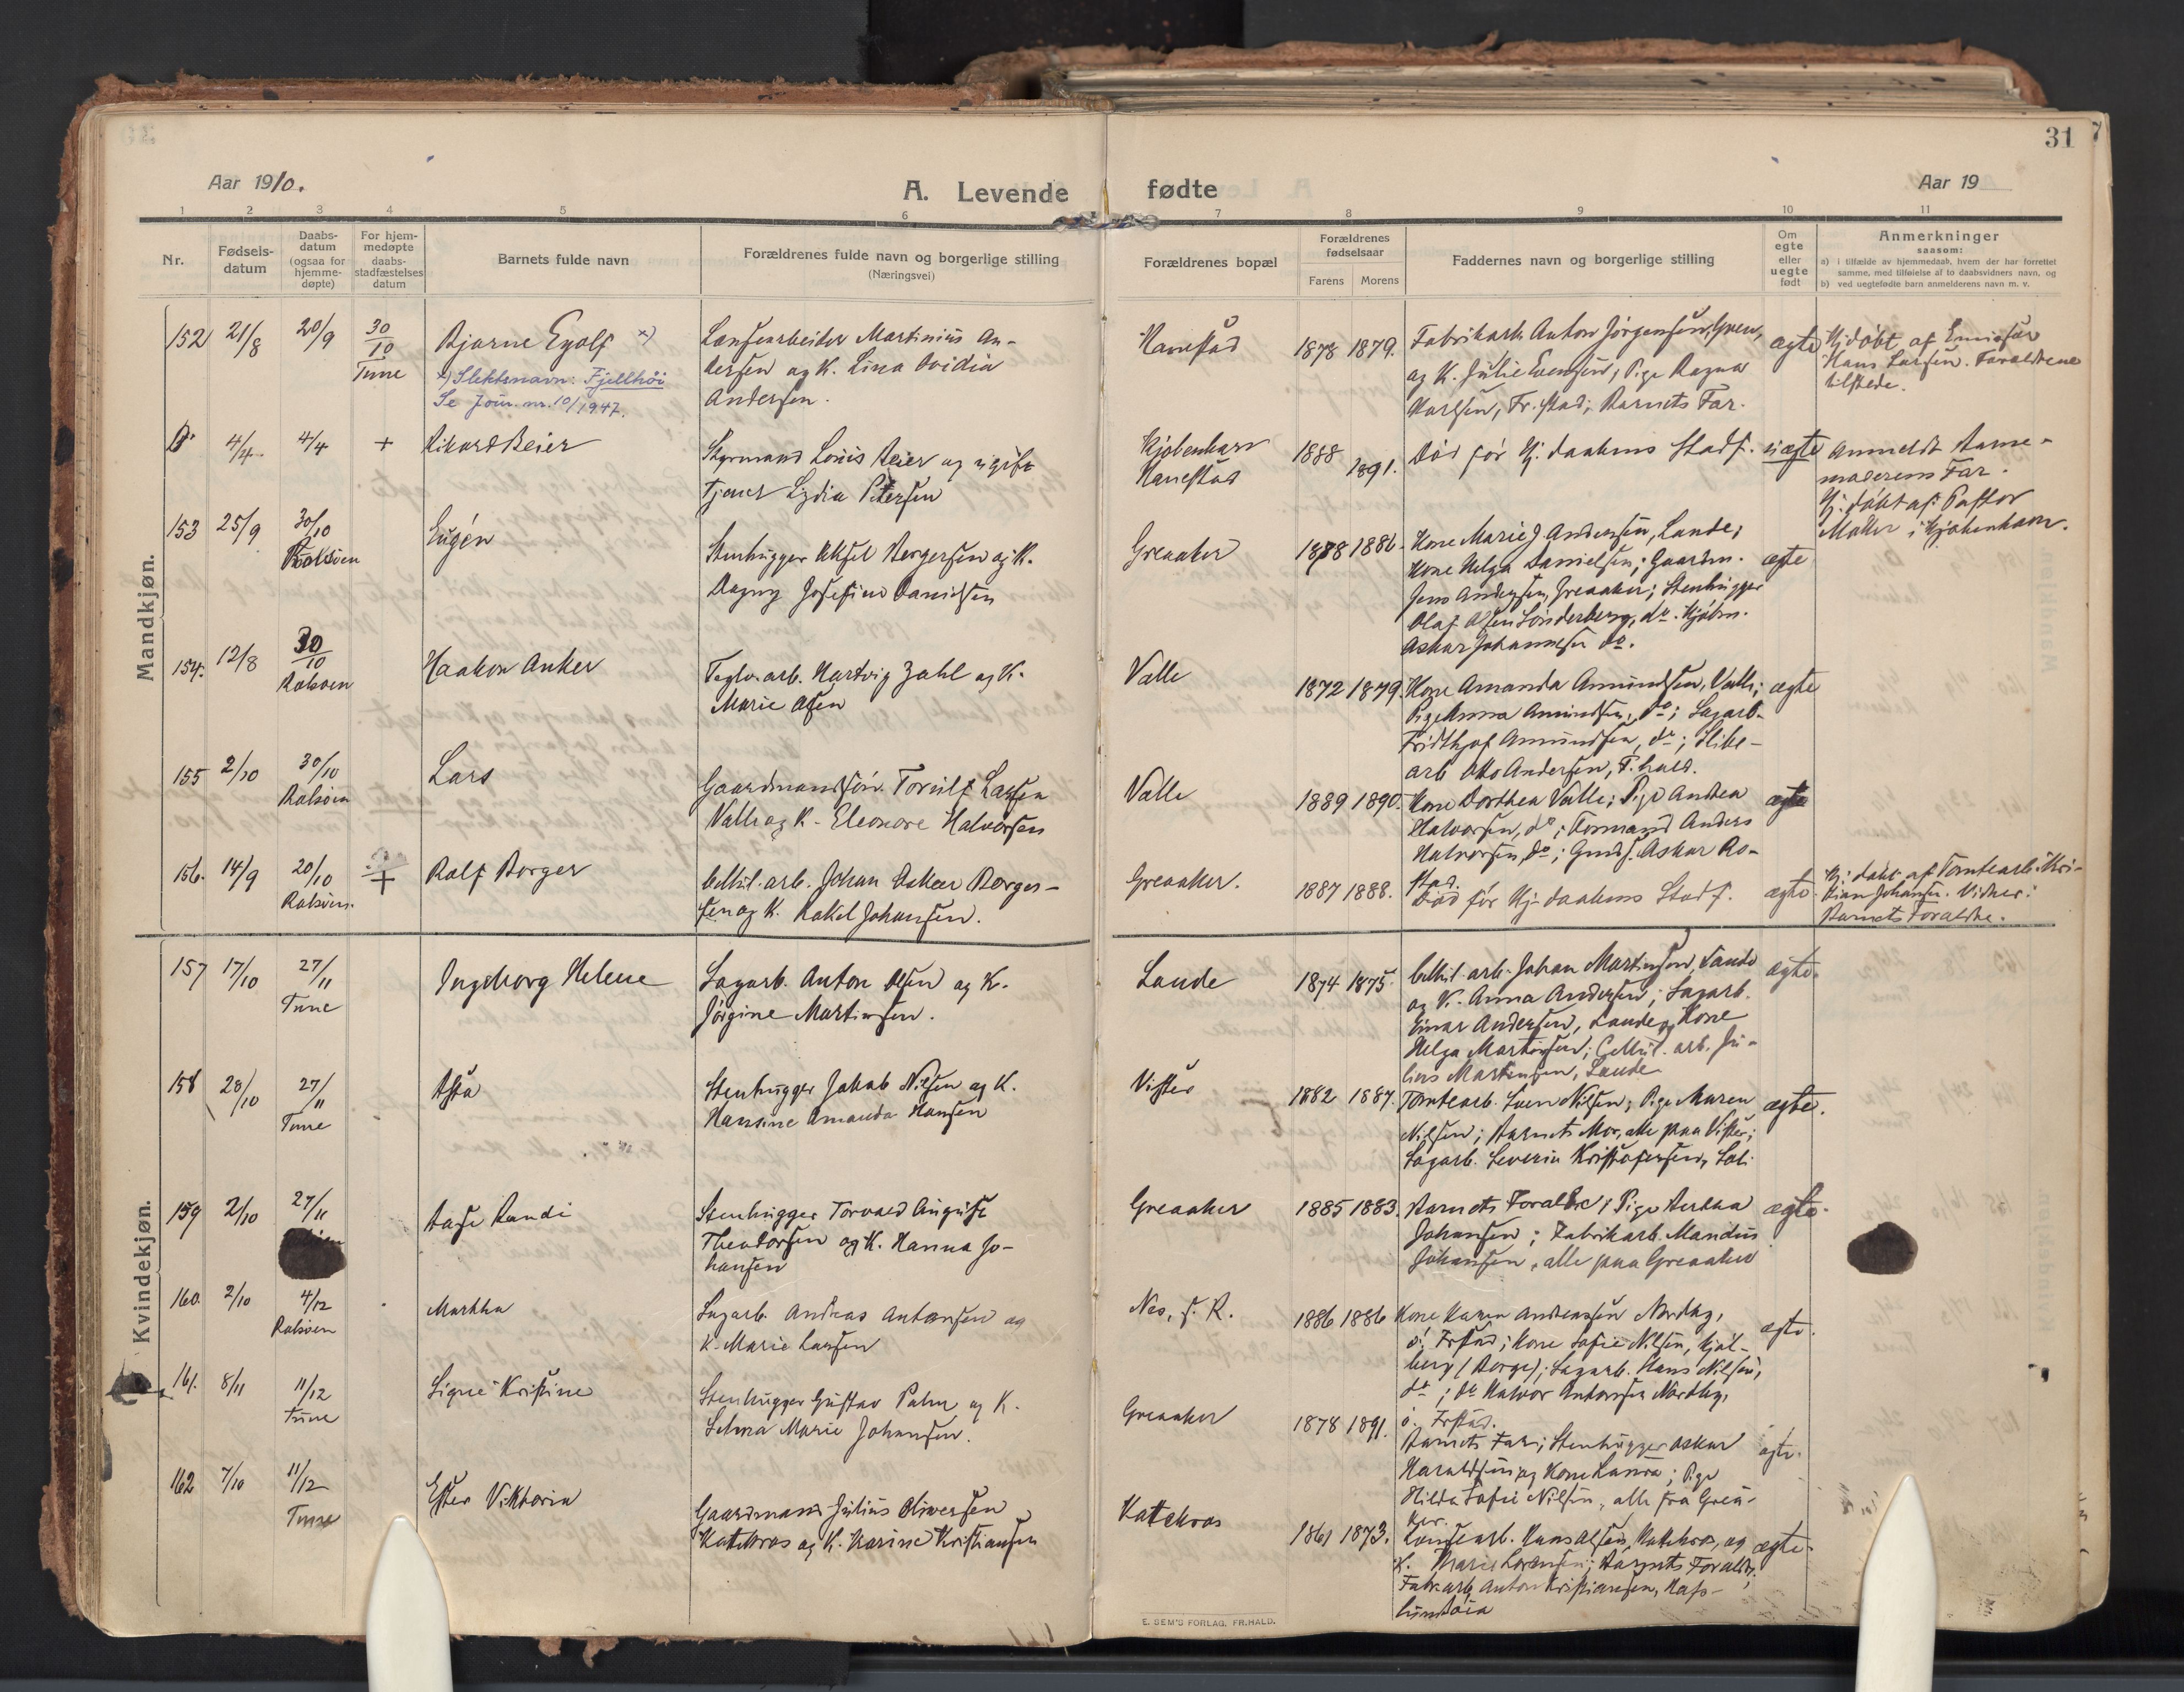 31
Aar 1910.
A. Levende fødte
Aar 19
1 2 3 4 5 6 7 8 9 10 11
Nr.
Fødsels-
datum
Daabs-
datum
(ogsaa for
hjemme-
døpte)
For hjem-
medøpte
daabs-
stadfæstelses
datum
Barnets fulde navn
Forældrenes fulde navn og borgerlige stilling
(Næringsvei)
Forældrenes bopæl
Forældrenes
fødselsaar
Farens Morens
Faddernes navn og borgerlige stilling
Om
egte
eller
uegte
født
Anmerkninger
saasom:
a) i tilfælde av hjemmedaab, hvem der har forrettet
samme, med tilføielse af to daabsvidners navn, og
b) ved uegtefødte barn anmelderens navn m. v.
Mandkjøn.
152 21/8 20/9 30/10 Tune
Bjarne Eyolf x)
x) Slektsnavn: Fjellhöi
Se jour. nr. 10/1947.
Lensearbeider Martinius An-
dersen og K. Lina Ovidia
Andersen.
Hannestad
1878 1879.
Fabrikarb. Anton Jörgensen, Greu,
og K. Julie Evensen; Pige Ragna
Karlsen, Fr.stad; Barnets Far.
ægte
Hj.döbt af Emissær
Hans Larsen. Forældrene
tilstede.
4/4 4/4 +
Rikard Beier
Styrmand Louis Beier og ugift
Tjener Lydia Petersen
Kjöbenhavn
Hannestad
1888 1891.
Död för Hj. daabens Stadf.
uægte
Anmeldt Barne-
moderens Far.
Hj. döbt af Pastor
Möller i Kjöbenhavn.
153 25/9 30/10 Rolvsöen
Eugén
Stenhugger Aksel Bergersen og K.
Dagny Josefine Danielsen
Greaaker
1878 1886.
Kone Marie J. Andersen, Lande;
Kone Helga Danielsen; Gaardm.
Jens Andersen, Greaaker; Stenhugger
Olaf Olsen Sönderberg, do. Kjöbm.
Oskar Johannesen do.
ægte
154. 12/8 30/10 Rolvsöen
Haakon Anker
Teglv.arb. Hartvig Zahl og K.
Marie Olsen
Valle
1872 1879.
Kone Amanda Amundsen, Valle;
Pige Anna Amundsen, do; Sagarb.
Fridthjof Amundsen, do; Slibe-
arb. Otto Andersen, F.hald.
ægte
155 2/10 30/10 Rolvsöen
Lars
Gaardmandsön Torulf Larsen
Valle og K. Eleonore Halvorsen
Valle
1889 1890.
Kone Dorthea Valle; Pige Andrea
Halvorsen, do; Formand Anders
Halvorsen, do; Gmds. Oskar Ro-
stad.
ægte
156. 14/9 20/10 Rolvsöen. +
Rolf Borger
Cellul. arb. Johan Oskar Borger-
sen og K. Rakel Johansen.
Greaaker.
1887 1888.
Död för Hj. daabens Stadf.
ægte.
Hj. döbt af Tomtearb. Kri-
stian Johansen. Vidner:
Barnets Forældre.
Kvindekjøn.
157 17/10 27/11 Tune
Ingeborg Helene
Sagarb. Anton Olsen og K.
Jörgine Martinsen.
Lande
1874 1875.
Cellul. arb. Johan Martinsen, Lande
og K. Anna Andersen; Sagarb.
Einar Andersen, Lande, og Kone
Helga Martinsen; Cellul. arb. Ju-
lius Martinsen, Lande
ægte.
158 28/10 27/11 Tune
Asta
Stenhugger Jakob Nilsen og K.
Hansine Amanda Hansen
Visters
1882 1887.
Tomtearb. Sven Nilsen; Pige Maren
Nilsen; Barnets Mor, alle paa Vister;
Sagarb. Severin Kristofersen, Sol.
ægte.
159 2/10 27/11
Aase Randi
Stenhugger Torvald August
Theodorsen og K. Hanna Jo-
hansen
Greaaker
1885 1883.
Barnets Forældre; Pige Bertha
Johansen; Fabrikarb. Mandius
Johansen, alle paa Greaaker
ægte.
160. 2/10 4/12 Rolvsöen
Martha
Sagarb. Andreas Antonsen og
K. Marie Larsen
Nes, s. R.
1886 1886
Kone Karen Andreassen Nordby,
ö. Frstad; Kone Sofie Nilsen, Kjöl-
berg (Borge); Sagarb. Hans Nilsen,
do; do Halvor Antonsen Nordby,
ö. Frstad.
ægte.
161. 8/11 11/12 Tune
Signe Kristine
Stenhugger Gustav Palm og K.
Selma Marie Johansen.
Greaaker
1878 1891.
Barnets Far; Stenhugger Oskar
Haraldsen og Kone Laura; Pige
Hilda Sofie Nilsen, alle fra Greaa-
ker.
ægte.
162 7/10 11/12 Tune
Ester Viktoria
Gaardmand Julius Oliversen
Kateraas og K. Karine Kristiansen
Kateraas
1861 1873.
Lensearb. Hans Olsen, Kateraas, og
K. Marie Lorensen; Barnets Forældre;
Fabr.arb. Anton Kristiansen, Hafs-
lundsöia
ægte.
E. SEM'S FORLAG, FR.HALD.